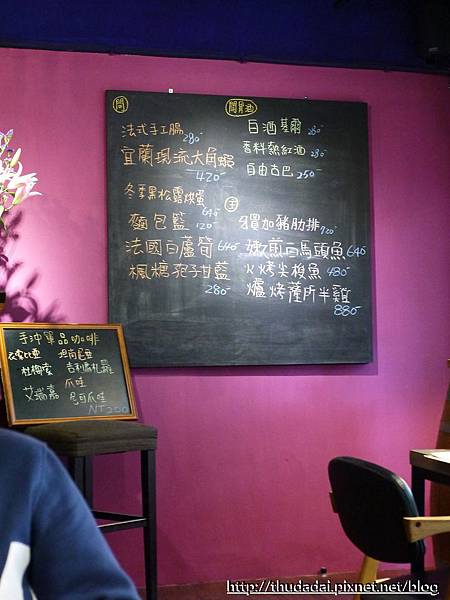 開
法式手工腸
280-
宜蘭現流大角蝦
420-
冬季黑松露烘蛋
640-
麵包籃 120-
法國白蘆筍 640-
楓糖孢子甘藍
280-
開胃酒
白酒基爾 260-
香料熱紅酒 280-
自由古巴 250-
主
牙買加豬肋排 720-
嫩煎馬頭魚 640-
火烤尖梭魚 480-
爐烤薩所半雞
880-
手沖單品咖啡
衣索比亞 坦尚尼亞
吉利馬札羅
爪哇
NT200
http://thudadai.pixnet.net/blog